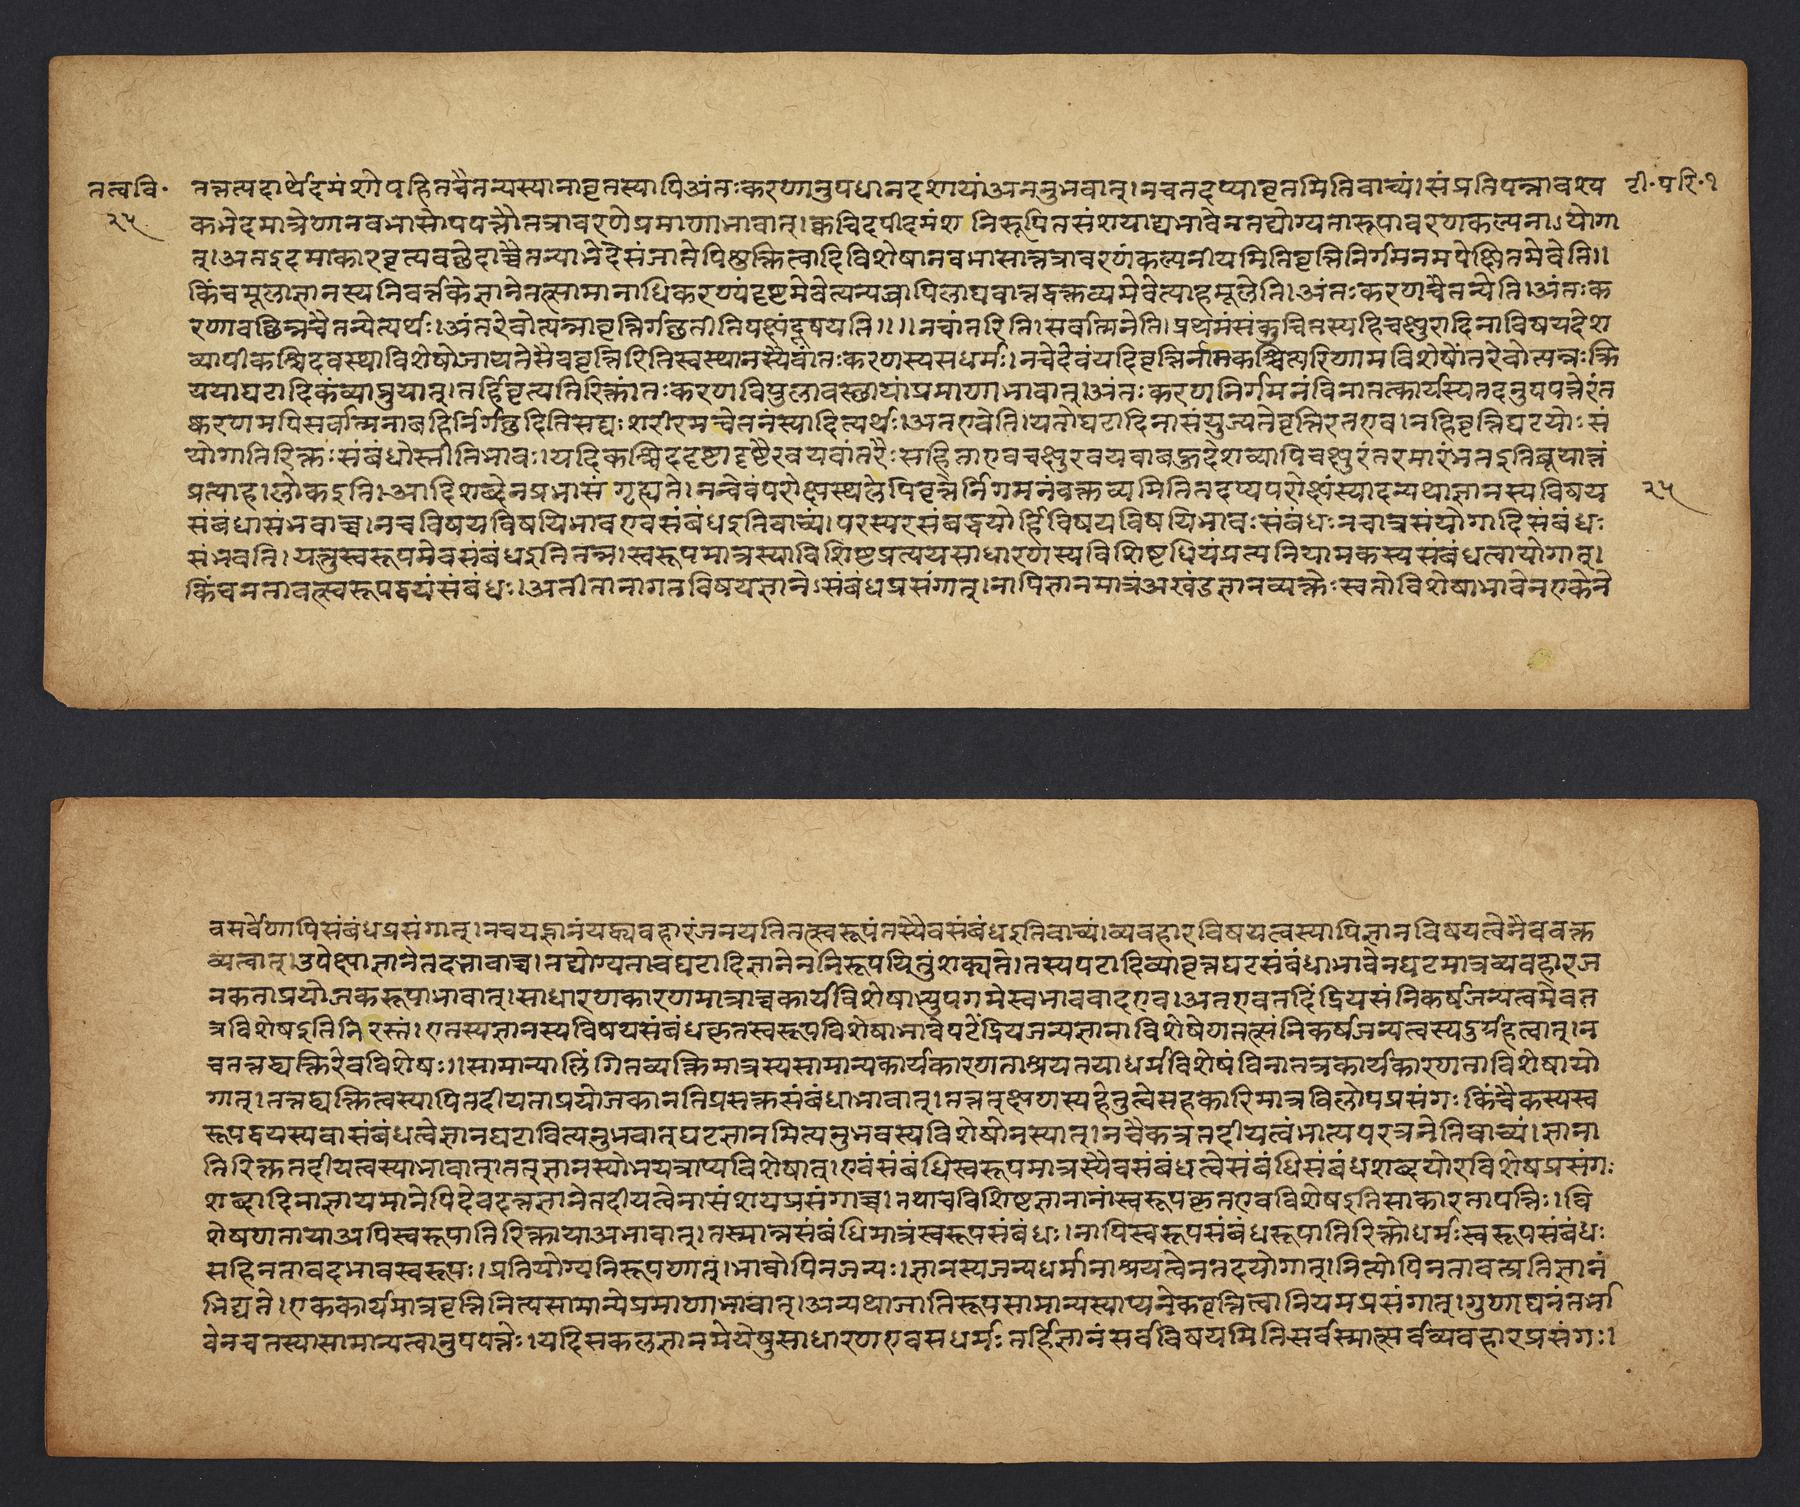 तत्ववि॰ तन्नत्पदार्थेदमंशोपहितचैतन्यस्यानावृतस्यापिअंतःकरणानुपधानदशायांअननुभवात्।नचतदप्यावृतमितिवाच्यं।संप्रतिपन्नावश्य टी॰परि॰१
२५ कभेदमात्रेणानवभासोपपत्तौतत्रावरणेप्रमाणाभावात्।क्वचिदपीदमंश निरूपितसंशयाद्यभावेनतद्योग्यतारूपावरणकल्पनाऽयोगा
त्।अतइदमाकारवृत्यवछेदाच्चैतन्याभेदेसंजातेपिशुक्तित्वादिविशेषानवभासात्तत्रावरणंकल्पनीयमितिवृत्तिनिर्गमनमपेक्षितमेवेति।।
किंचमूलाज्ञानस्यनिवर्त्तकेज्ञानेतत्सामानाधिकरण्यंदृष्टमेवेत्यन्यत्रापिलाघवात्तद्वक्तव्यमेवेत्याहमूलेति।अंतःकरणचैतन्येति।अंतःक
रणावछिन्नचैतन्येत्यर्थः।अंतरेवोत्पन्नावृत्तिर्गछतीतिपक्षंदूषयति।।।।नचांतरिति।सर्वात्मनेति।प्रथमंसंकुचितस्यहिचक्षुरादिनाविषयदेश
व्यापीकश्चिदवस्थाविशेषोजायतेसैववृत्तिरितिस्वस्थानस्यैवांतःकरणस्यसधर्मः।नचेदेवंयदिवृत्तिर्नामकश्चित्परिणामविशेषोंतरेवोत्पन्नःक्ति
ययाघटादिकंव्याप्नुयात्।तर्हिवृत्यतिरिक्तांतःकरणविपुलावस्छायांप्रमाणाभावात्।अंतःकरणनिर्गमनंविनातत्कार्यस्यतदनुपपत्तेरंत
ष्करणमपिसर्वात्मनाबहिर्निर्गछदितिसद्यःशरीरमचेतनंस्यादित्यर्थः।अतएवेति।यतोघटादिनासंयुज्यतेवृत्तिरतएव।नहिवृत्तिघटयोःसं
योगातिरिक्तःसंबंधोस्तीतिभावः।यदिकश्चिददृष्टादृष्टैरवयवांतरैःसहितावएवचक्षुरवयवाबहुदेशव्यापिचक्षुरंतरमारंभतइतिब्रूयात्तं
प्रत्याह।लोकइति।आदिशब्देनप्रभासं गृह्यते।नन्वेवंपरोक्षस्थलेपिवृत्तेर्निगमनंवक्तव्यमितितदप्यपरोक्षंस्यादन्यथाज्ञानस्यविषय २५
संबंधासंभवाच्च।नचविषयविषयिभावएवसंबंधइतिवाच्यं।परस्परसंबद्धयोर्हिविषयविषयिभावःसंबंधःनचात्रसंयोगादिसंबंधः
संभवति।यत्तुस्वरूपमेवसंबंधइतितन्न।स्वरूपमात्रस्याविशिष्टप्रत्ययसाधारणस्यविशिष्टधियंप्रत्यनियामकस्यसंबंधत्वायोगात्।
किंचनतावत्स्वरूपद्वयंसंबंधः।अतीतानागतविषयज्ञानेऽसंबंधप्रसंगात्।नापिज्ञानमात्रंअखंडज्ञानव्यक्तेःस्वतोविशेषाभावेनएकेने
वसर्वेणापिसंबंधप्रसंगात्।नचयज्ञानंयद्व्यवहारंजनयतितत्स्वरूपंतस्यैवसंबंधइतिवाच्यं।व्यवहारविषयत्वस्यापिज्ञानविषयत्वेनैववक्त
व्यत्वात्।उपेक्षाज्ञानेतदभावाच्च।नद्योग्यताचघटादिज्ञानेननिरूपयितुंशक्यते।तस्यपटादिव्यावृत्तघटसंबंधाभावेनघटमात्रव्यवहारज
नकताप्रयोजकरूपाभावात्।साधारणकारणमात्राच्चकार्यविशेषाभ्युपगमेस्वभाववादएव।अतएवतदिंद्रियसंनिकर्षजन्यत्वमेवत
त्रविशेषइतिनिरस्तं।एतस्यज्ञानस्यविषयसंबंधकृतस्वरूपविशेषाभावेपटेंद्रियजन्यज्ञानाविशेषेणतत्संनिकर्षजन्यत्वस्यदुर्ग्रहत्वात्।न
चतत्तद्व्यक्तिरेवविशेषः।।सामान्यालिंगितव्यक्तिमात्रस्यसामान्यकार्यकारणताश्रयतयाधर्मविशेषंविनातत्रकार्यकारणताविशेषायो
गात्।तत्तद्व्यक्तित्वस्यापितदीयताप्रयोजकानतिप्रसक्तसंबंधाभावात्।तत्तत्क्षणस्यहेतुत्वेसहकारिमात्रविलोपप्रसंगःकिंचैकस्यस्व
रूपद्वयस्यवासंबंधत्वेज्ञानघटावित्यनुभवात्घटज्ञानमित्यनुभवस्यविशेषोनस्यात्।नचैकत्रतदीयत्वंभात्यपरत्रनेतिवाच्यं।ज्ञाना
तिरिक्ततदीयत्वस्याभावात्।तत्ज्ञानस्योभयत्राप्यविशेषात्।एवंसंबंधिस्वरूपमात्रस्यैवसंबंधत्वेसंबंधिसंबंधशब्दयोरविशेषप्रसंगः
शब्दादिनाज्ञायमानेपिदेवदत्तज्ञानेतदीयत्वेनासंशयप्रसंगाच्च।तथाचविशिष्टज्ञानानांस्वरूपकृतएवविशेषइतिसाकारतापत्तिः।वि
शेषणतायाअपिस्वरूपातिरिक्तायाअभावात्।तस्मान्नसंबंधिमात्रंस्वरूपसंबंधः।नापिस्वरूपसंबंधरूपातिरिक्तोधर्मःस्वरूपसंबंधः
सहिनतावदभावस्वरूपः।प्रतियोग्यनिरूपणात्।भावोपिनजन्यः।ज्ञानस्यजन्यधर्मानाश्रयत्वेनतदयोगात्।नित्योपिनतावत्प्रतिज्ञानं
भिद्यते।एककार्यमात्रवृत्तिनित्यसामान्येप्रमाणाभावात्।अन्यथाजातिरूपसामान्यस्याप्यनेकवृत्तित्वानियमप्रसंगात्।गुणाद्यनंतर्भा
वेनचतस्यासामान्यत्वानुपपत्तेः।यदिसकलज्ञानमेयेषुसाधारणएवसधर्मःतर्हिज्ञानंसर्वविषयमितिसर्वस्मात्सर्वव्यवहारप्रसंगः।